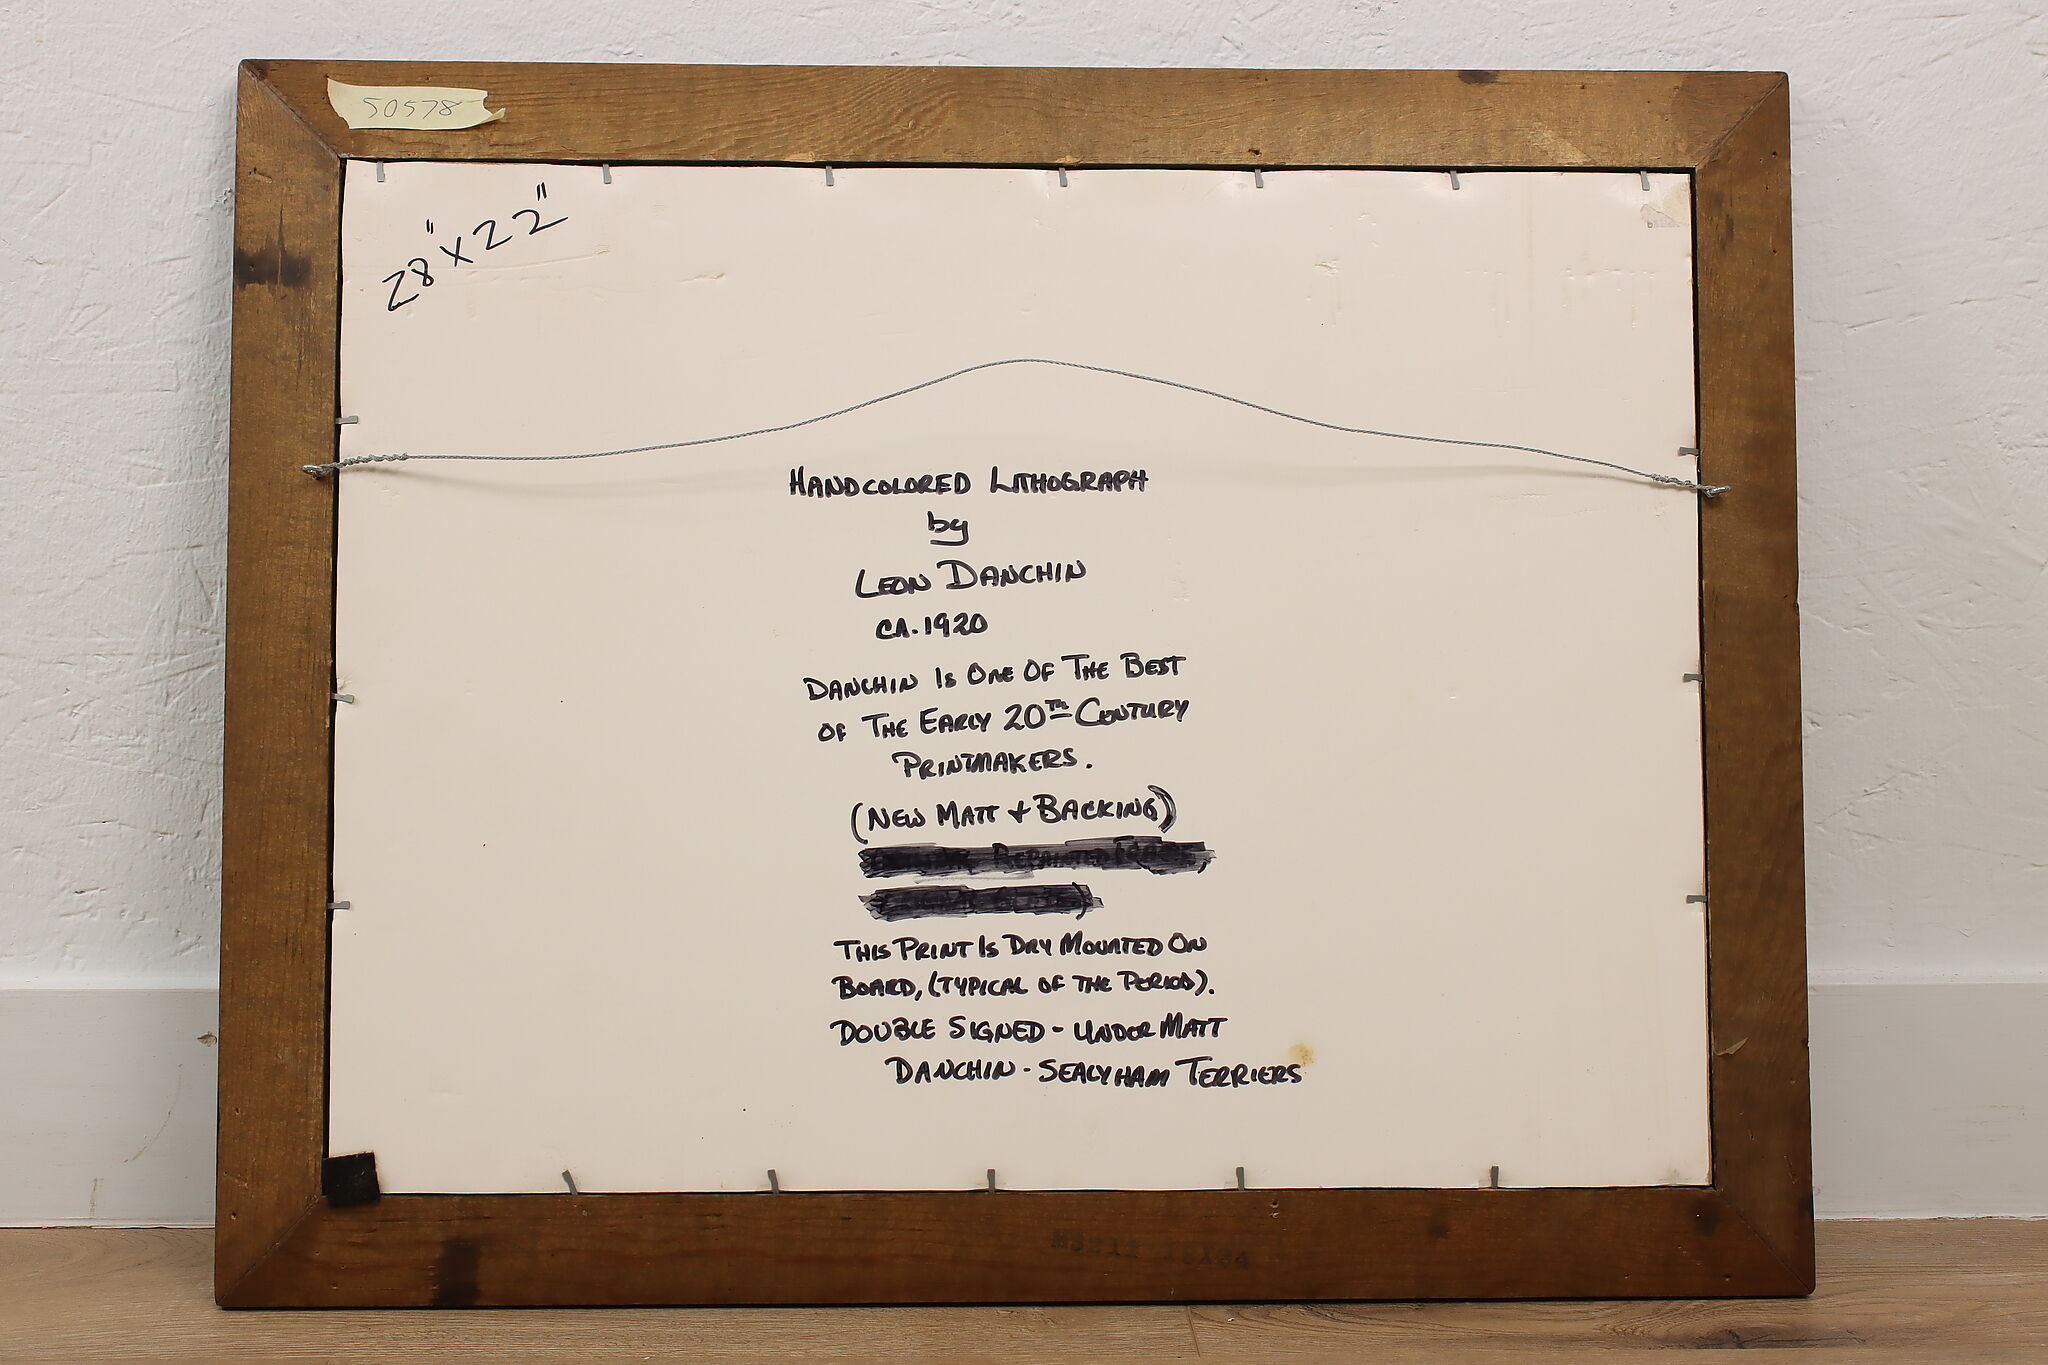 50578
28" x 22"
HANDCOLORED LITHOGRAPH
by
LEON DANCHIN
CA. 1920
DANCHIN IS ONE OF THE BEST
OF THE EARLY 20TH CENTURY
PRINTMAKERS.
(NEW MATT + BACKING)
REPAINTED
THIS PRINT IS DRY MOUNTED ON
BOARD, (TYPICAL OF THE PERIOD).
DOUBLE SIGNED - UNDER MATT
DANCHIN - SEALYHAM TERRIERS